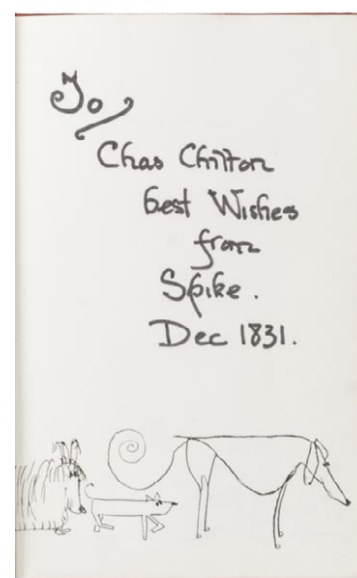 To
Chas Chilton
best Wishes
from
Spike.
Dec 1831.